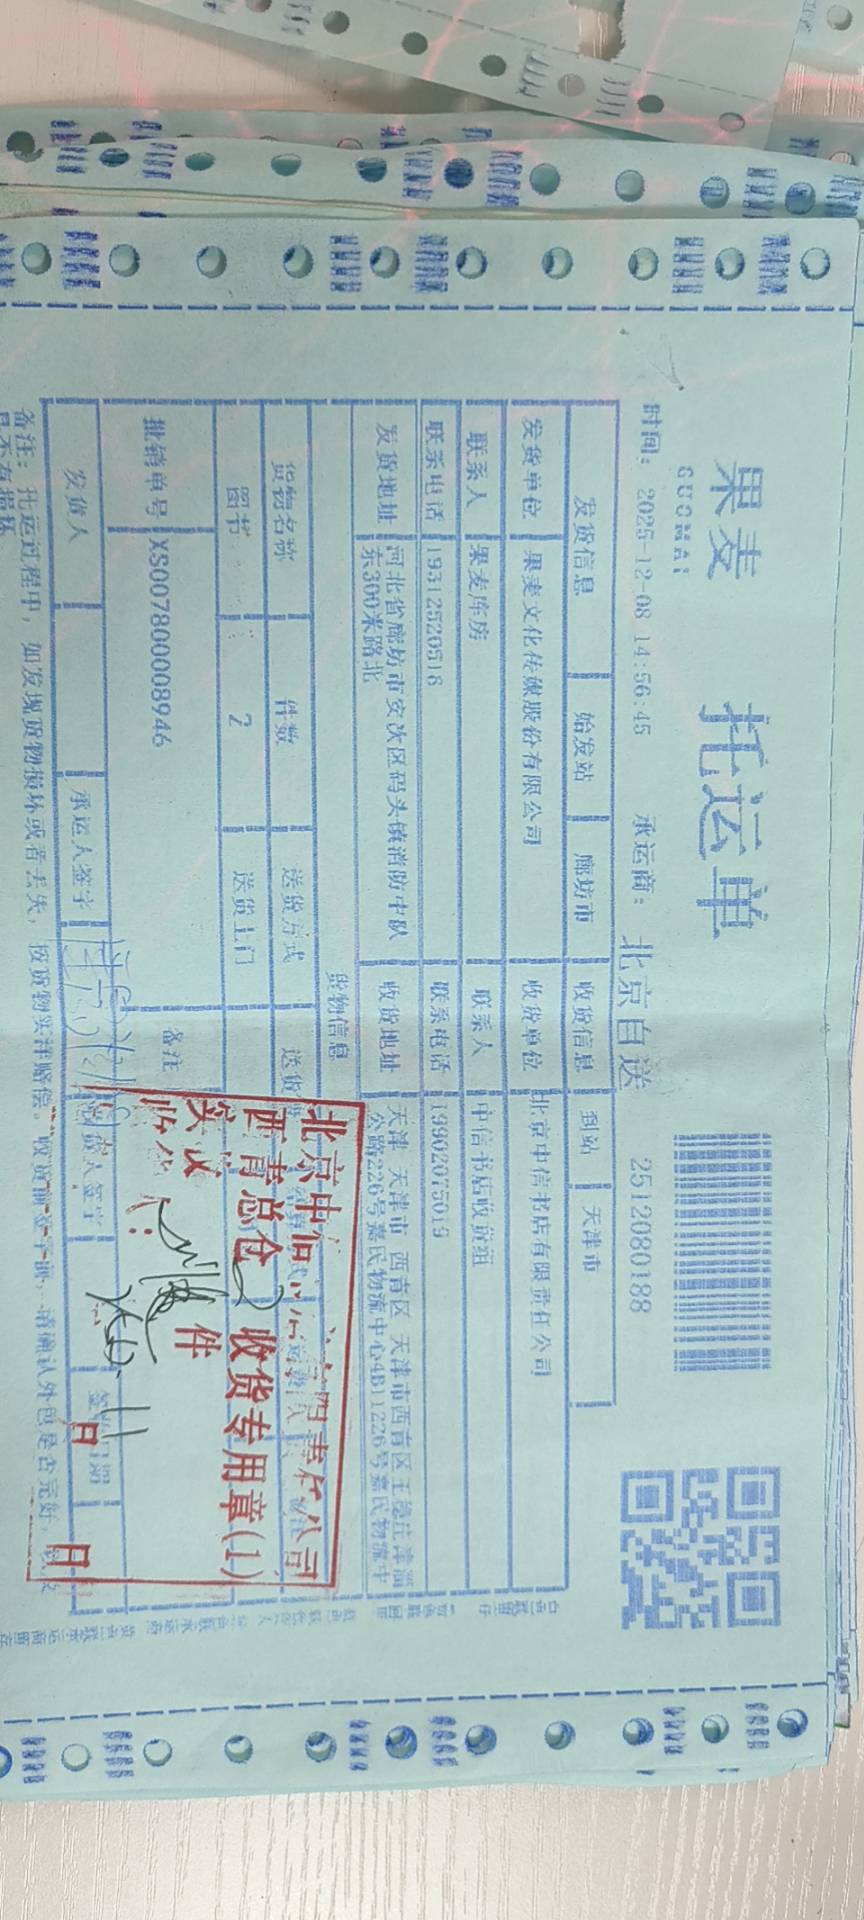 果麦
GUOMAI
托运单
时间: 2025-12-08 14:56:45
承运商: 北京自送
2512080188
发货信息 始发站 廊坊市 收货信息 到站 天津市
发货单位 果麦文化传媒股份有限公司 收货单位 北京中信书店有限责任公司
联系人 果麦库房 联系人 中信书店收货组
联系电话 19312520518 联系电话 19902075015
发货地址 河北省廊坊市安次区码头镇消防中队
东300米路北
收货地址 天津 天津市 西青区 天津市西青区王稳庄津淄
公路226号嘉民物流中心4B11226号嘉民物流中
货物信息
货物名称 件数 送货方式 送货
图书 2 送货上门
批销单号 XS007800008946 备注
发货人 承运人签字 货人签字
备注: 托运过程中, 如发现货物损坏或者丢失, 按货物实洋赔偿。 请确认外包是否完好,
西青总仓 收货专用章(1)
实收 2 件
日